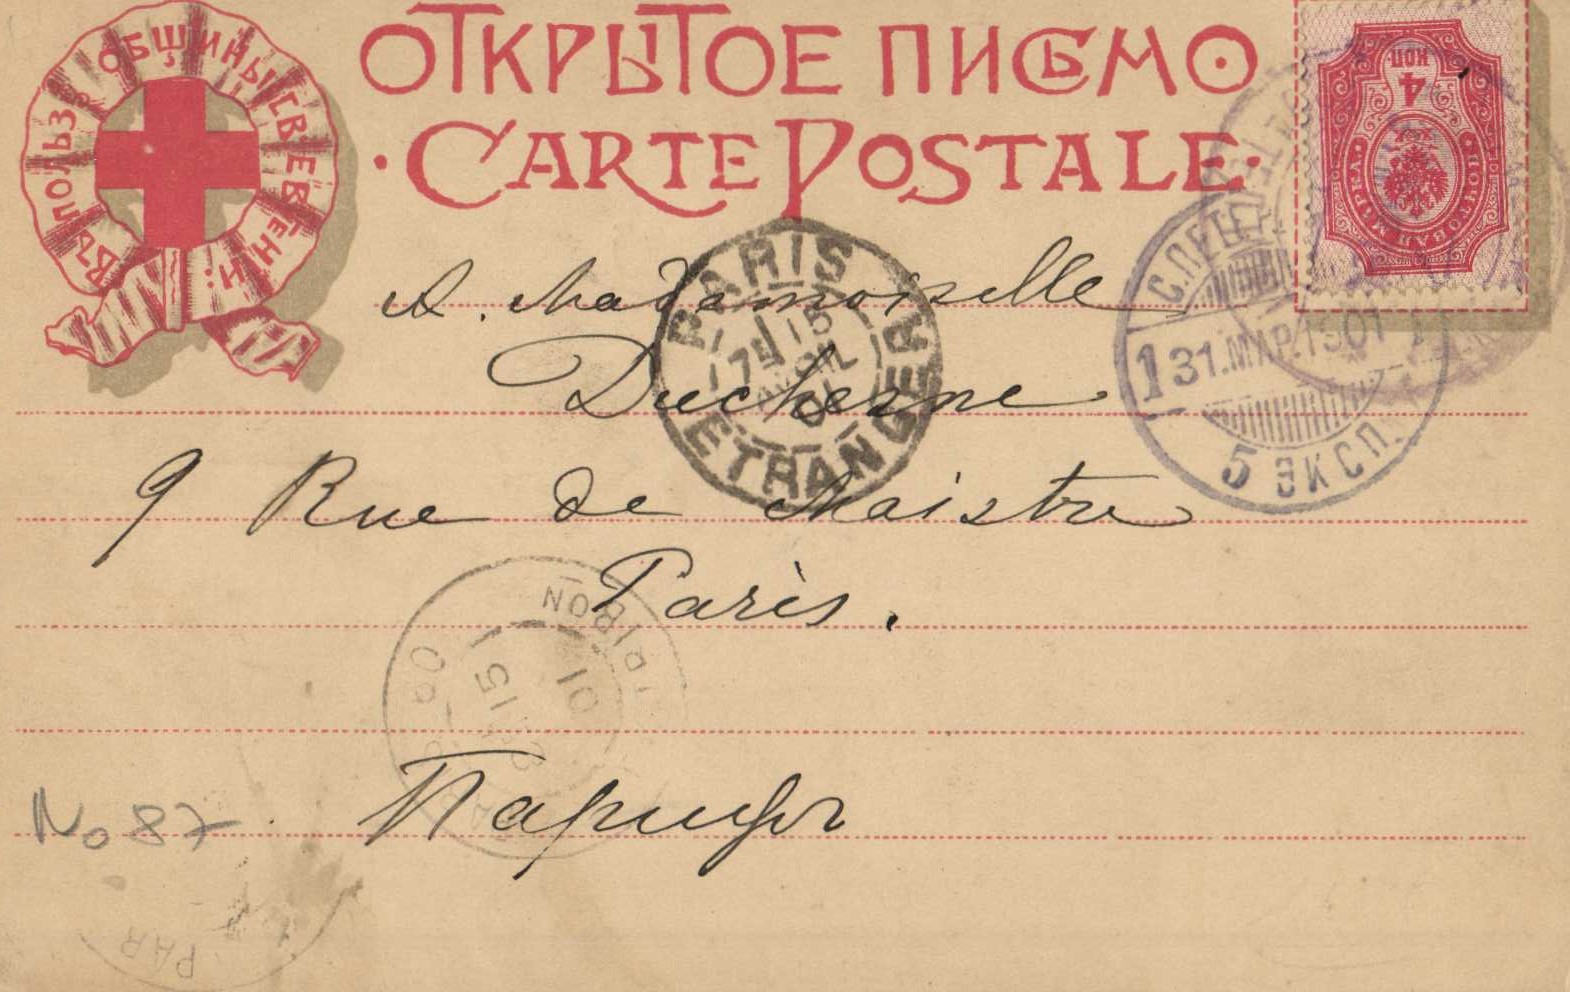 ОТКРЫТОЕ ПИСЬМО
CARTE POSTALE
ВЪ ПОЛЬЗУ ОБЩИНЫ СВ. ЕВГЕНІИ.
4 КОП
ПОЧТОВАЯ МАРКА
A. Mademoiselle
PARIS
7E 15
AVRIL
01
ETRANGER
С.ПЕТЕРБ
1 31.МАР.1901 1
5 ЭКСП.
Ducherne
9 Rue de Maistre
Paris.
15
01
Парижъ
No 87
PAR